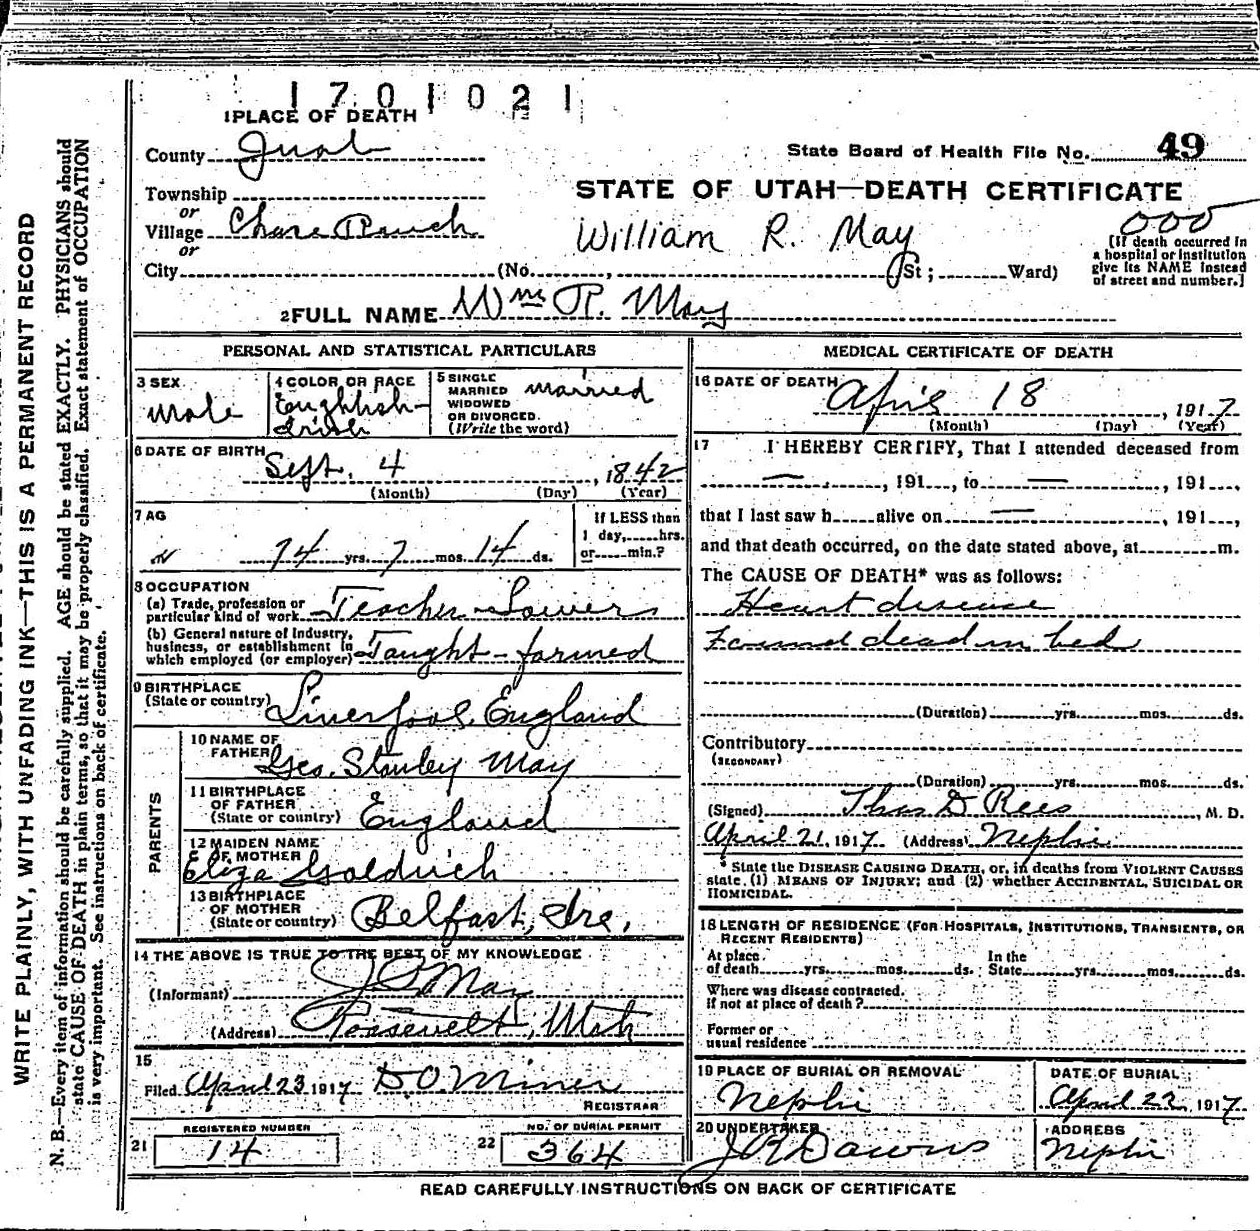 1701021
1 PLACE OF DEATH
County Juab
State Board of Health File No. 49
Township
or
STATE OF UTAH—DEATH CERTIFICATE
Village Chase Ranch
William R. May
000
or
City (No. , St; Ward)
[If death occurred in
a hospital or institution
give its NAME instead
of street and number.]
2 FULL NAME Wm R. May
WRITE PLAINLY, WITH UNFADING INK—THIS IS A PERMANENT RECORD
N. B.—Every item of information should be carefully supplied. AGE should be stated EXACTLY. PHYSICIANS should
state CAUSE OF DEATH in plain terms, so that it may be properly classified. Exact statement of OCCUPATION
is very important. See instructions on back of certificate.
PERSONAL AND STATISTICAL PARTICULARS
3 SEX
Male
4 COLOR OR RACE
English-
Irish
5 SINGLE
MARRIED
WIDOWED
OR DIVORCED.
(Write the word)
married
6 DATE OF BIRTH
Sept. 4, 1842
(Month) (Day) (Year)
7 AG
74 yrs. 7 mos. 14 ds.
If LESS than
1 day, hrs.
or min.?
8 OCCUPATION
(a) Trade, profession or
particular kind of work Teacher-
(b) General nature of Industry,
business, or establishment in
which employed (or employer) Taught-farmed
9 BIRTHPLACE
(State or country) Liverpool, England
PARENTS
10 NAME OF
FATHER Geo. Stanley May
11 BIRTHPLACE
OF FATHER
(State or country) England
12 MAIDEN NAME
OF MOTHER
Eliza Goldrich
13 BIRTHPLACE
OF MOTHER
(State or country) Belfast, Ire.
14 THE ABOVE IS TRUE TO THE BEST OF MY KNOWLEDGE
(Informant) May
(Address) Roosevelt, Utah
15
Filed April 23 1917 D.O. Miner
REGISTRAR
REGISTERED NUMBER
21 14
NO. OF BURIAL PERMIT
22 364
MEDICAL CERTIFICATE OF DEATH
16 DATE OF DEATH April 18, 1917
(Month) (Day) (Year)
17 I HEREBY CERTIFY, That I attended deceased from
—, 191, to —, 191,
that I last saw h alive on —, 191,
and that death occurred, on the date stated above, at m.
The CAUSE OF DEATH* was as follows:
Heart disease
Found dead in bed
(Duration) yrs. mos. ds.
Contributory
(SECONDARY)
(Duration) yrs. mos. ds.
(Signed) Thos D Rees, M. D.
April 21, 1917 (Address) Nephi
* State the DISEASE CAUSING DEATH, or, in deaths from VIOLENT CAUSES
state (1) MEANS OF INJURY; and (2) whether ACCIDENTAL, SUICIDAL OR
HOMICIDAL.
18 LENGTH OF RESIDENCE (FOR HOSPITALS, INSTITUTIONS, TRANSIENTS, OR
RECENT RESIDENTS)
At place
of death yrs. mos. ds.
In the
State yrs. mos. ds.
Where was disease contracted.
if not at place of death?
Former or
usual residence
19 PLACE OF BURIAL OR REMOVAL
Nephi
DATE OF BURIAL
April 22, 1917
20 UNDERTAKER
ADDRESS
Nephi
READ CAREFULLY INSTRUCTIONS ON BACK OF CERTIFICATE